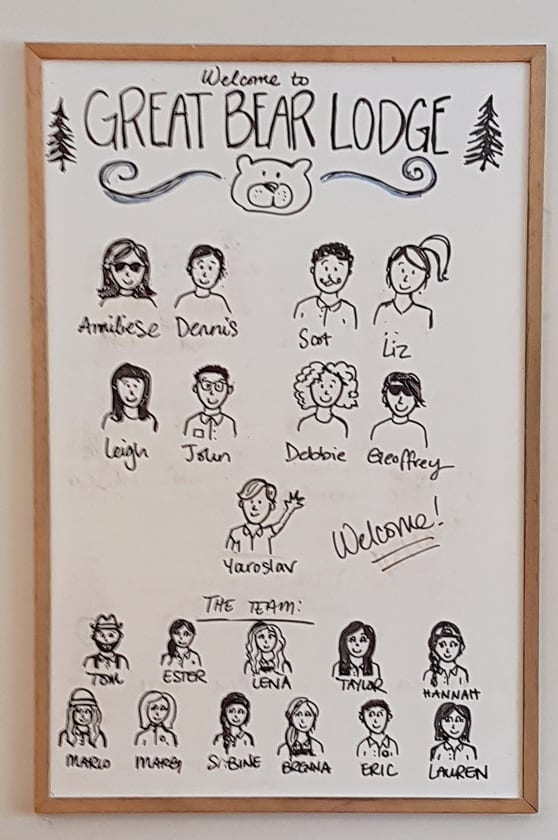 Welcome to
GREAT BEAR LODGE
Amiliese Dennis Scot Liz
Leigh John Debbie Geoffrey
Yaroslav
Welcome!
THE TEAM:
TOM ESTER LENA TAYLOR HANNAH
MARLO MARG SABINE BRENNA ERIC LAUREN